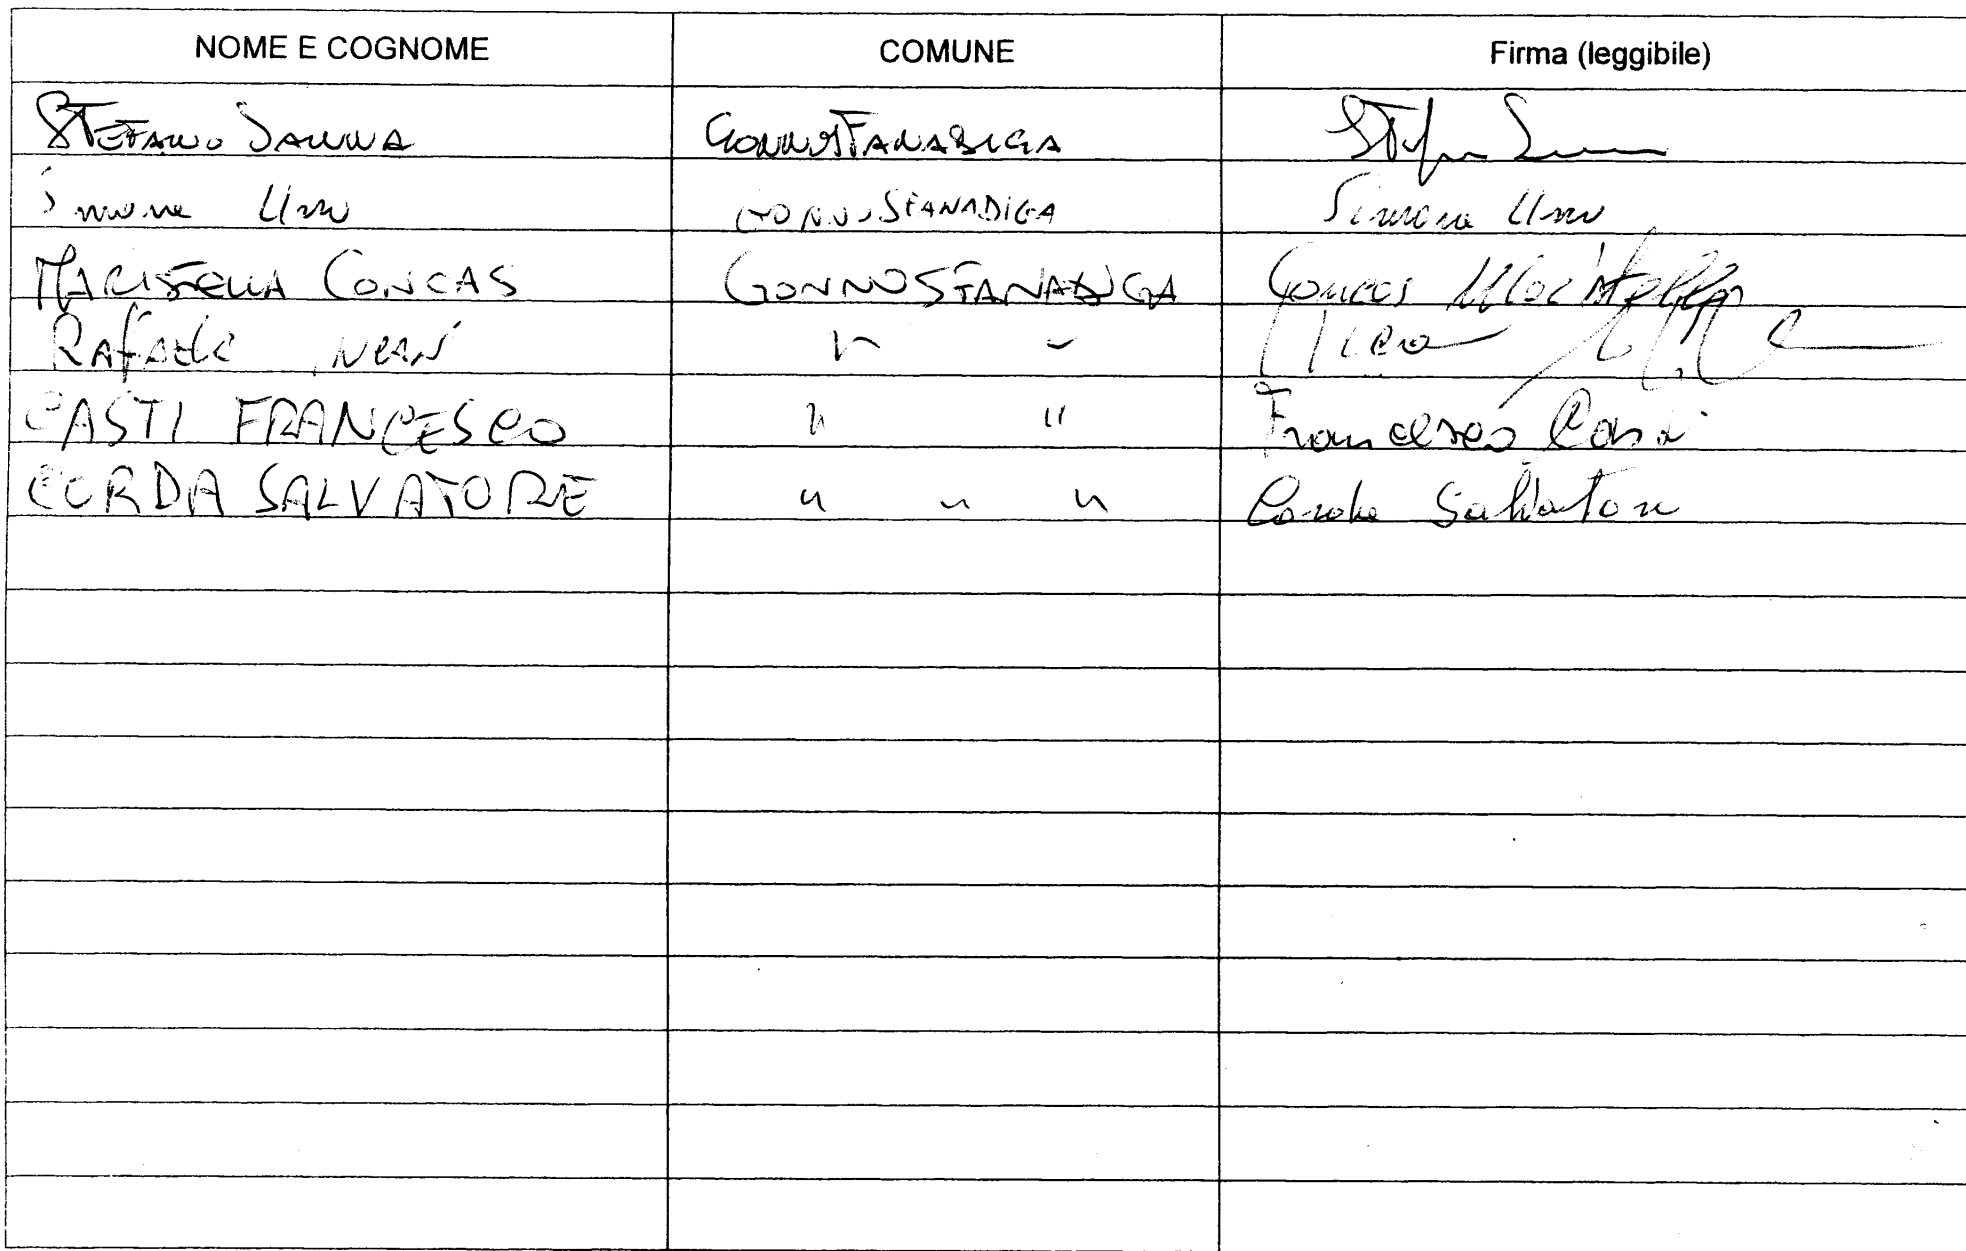 NOME E COGNOME COMUNE Firma (leggibile)
STEFANO SANNA GONNOSFANADIGA
Simone GONNOSFANADIGA Simone
MARISTELLA CONCAS GONNOSFANADIGA Concas Maristella
RAFAELE " "
CASTI FRANCESCO " " Francesco Casti
CORDA SALVATORE " " " Corda Salvatore